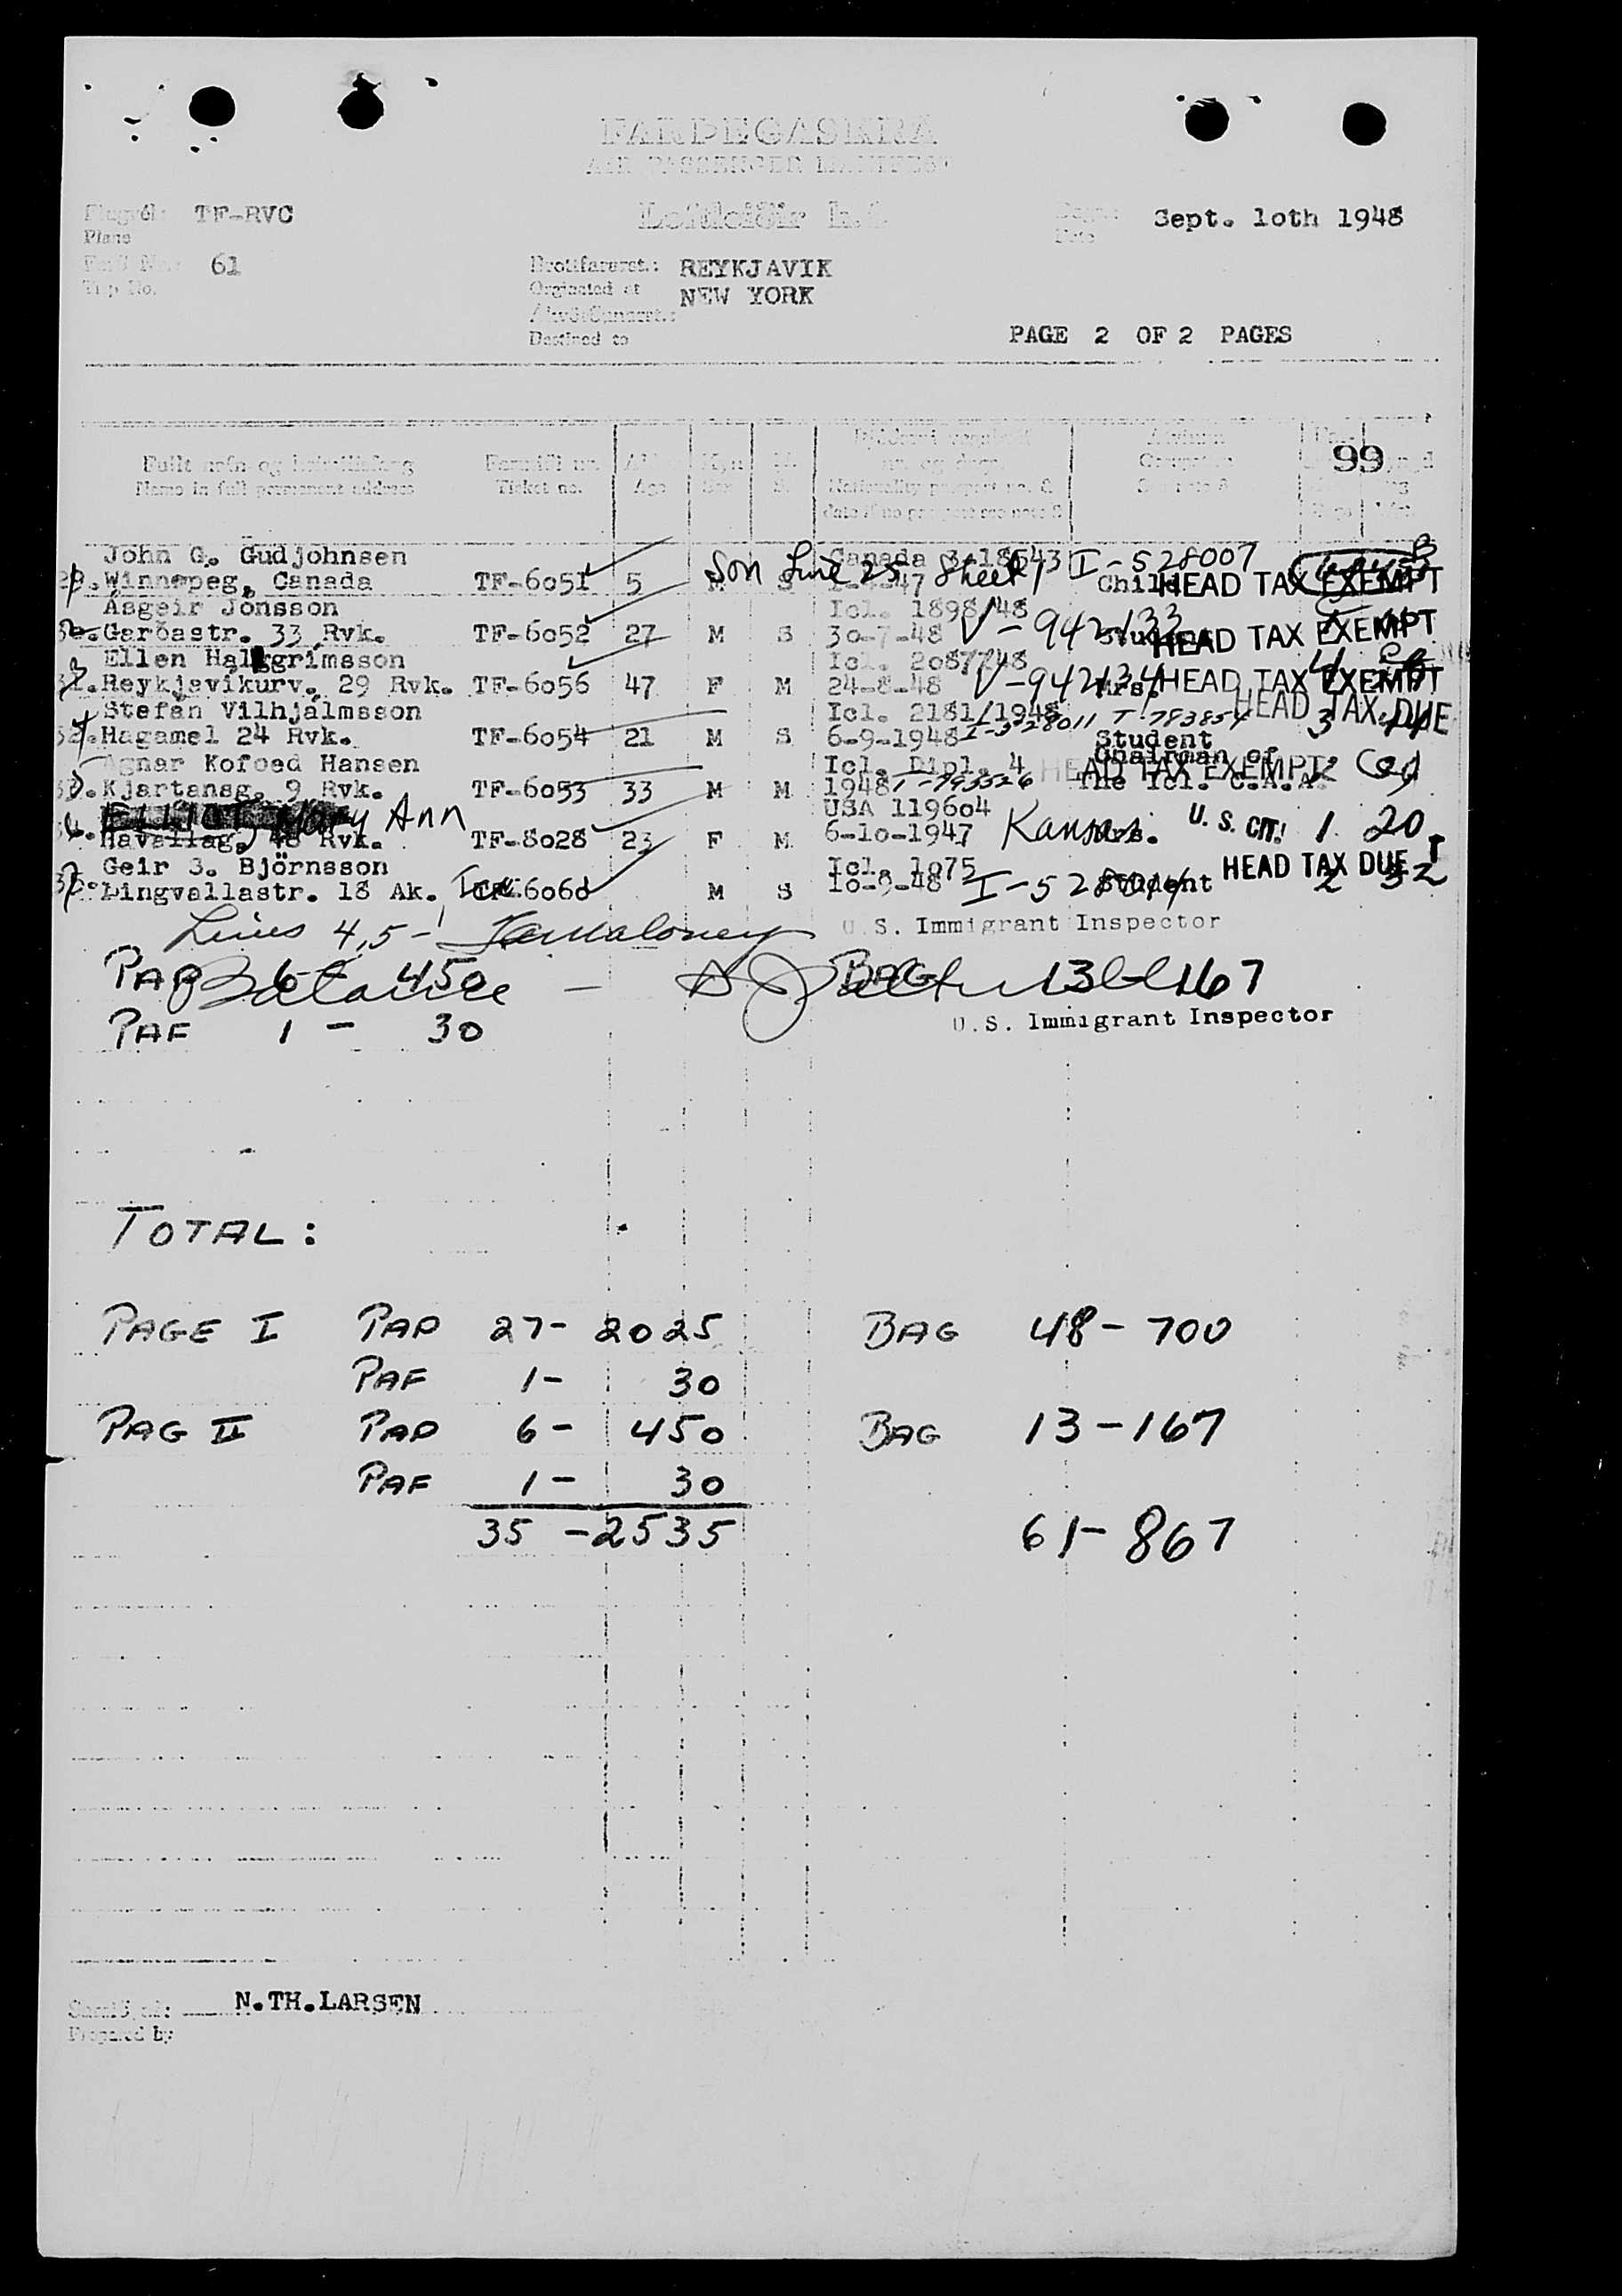 FARÞEGASKRÁ
AIR PASSENGER MANIFEST
Loftleiðir h.f.
Flugvél: TF-RVC
Plane
Sept. 10th 1948
Ferð No.: 61
Trip No.
Brottfararst.: REYKJAVIK
Orginated at
NEW YORK
Destined to
PAGE 2 OF 2 PAGES
99
Fullt nafn og heimilisfang
Name in full permanent address
Farseðill nr.
Ticket no.
Age
Kyn
Sex
Nationality passport no. &
date if no passport see note 2
John G. Gudjohnsen Canada 3-18543 I-528007
Winnepeg, Canada TF-6051 5 M Son Line 25 Sheet 1 S Child HEAD TAX EXEMPT
Ásgeir Jónsson Icl. 1898/48
Garðastr. 33 Rvk. TF-6052 27 M S 30-7-48 V-942133 Student HEAD TAX EXEMPT
Ellen Hallgrímsson Icl. 2087748
Reykjavíkurv. 29 Rvk. TF-6056 47 F M 24-8-48 V-942134 Mrs. HEAD TAX EXEMPT
Stefán Vilhjálmsson Icl. 2181/1948 HEAD TAX DUE
Hagamel 24 Rvk. TF-6054 21 M S 6-9-1948 I-528011 T-783854 Student 3
Agnar Kofoed Hansen Icl. Dipl. 4 HEAD TAX EXEMPT Chairman of
Kjartansg. 9 Rvk. TF-6053 33 M M 1948 T-793326 The Icl. C.A.A.
ELLIOT, Mary Ann USA 119604
Hávallag. 48 Rvk. TF-8028 23 F M 6-10-1947 Kansas Mrs. U. S. CIT. 1 20
Geir J. Björnsson Icl. 1075 HEAD TAX DUE
Þingvallastr. 18 Ak. TF-6060 M S 10-8-48 I-528014 Student 2 32
Lines 4,5- U.S. Immigrant Inspector
PAP 6- 450 BAG 13-167
Balance -
PAF 1 - 30 U.S. Immigrant Inspector
TOTAL:
PAGE I PAP 27- 2025 BAG 48-700
PAF 1- 30
PAG II PAP 6- 450 BAG 13-167
PAF 1- 30
35 -2535 61-867
N.TH.LARSEN
Prepared by